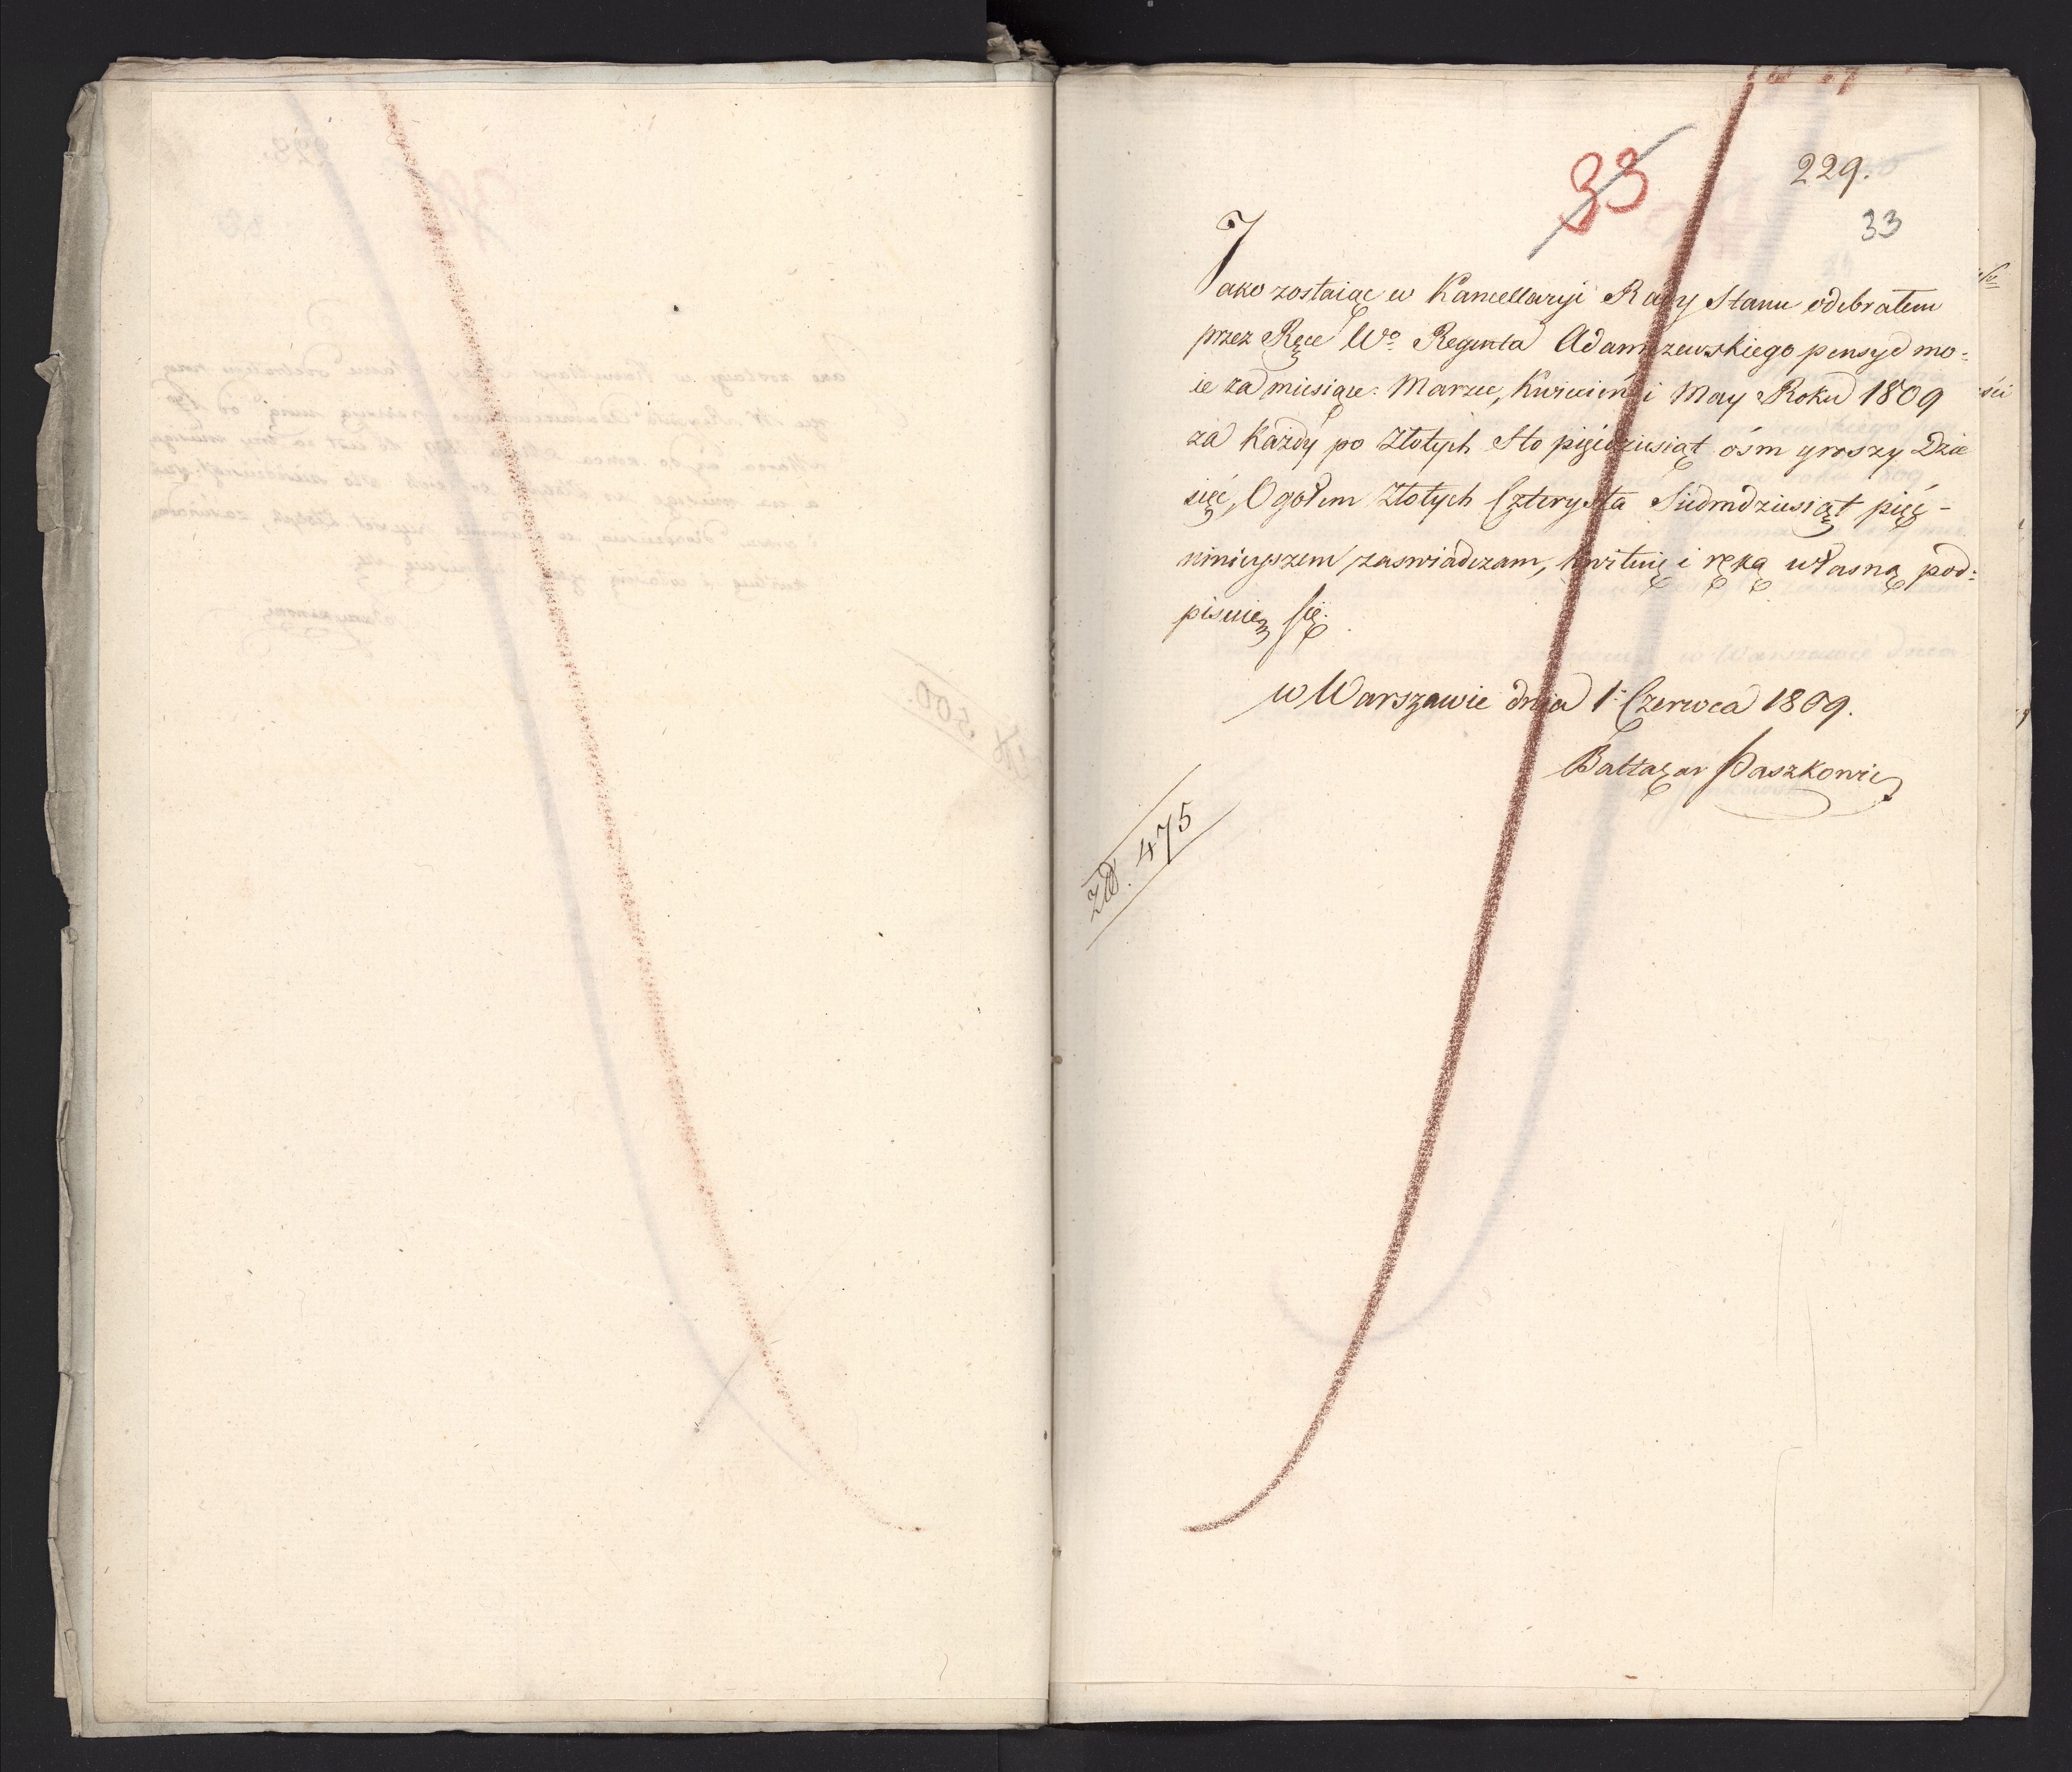 33
229.
33
Jako zostaiąc w Kancellaryi Rady Stanu odebrałem
przez Ręce Wo Regenta Adamczewskiego pensyą mo:
ie za miesiące: Marzec, Kwiecień i May Roku 1809
za Każdy po Złotych Sto pięćdziesiąt ośm groszy Dzie
sięć, Ogołem Złotych Czterysta Siedmdziesiąt pięć -
nınieyszem zaswiadczam, kwituię i ręką własną pod:
pisuię się.
w Warszawie dnia 1: Czerwca 1809.
Baltazar Paszkowicz
zł. 475